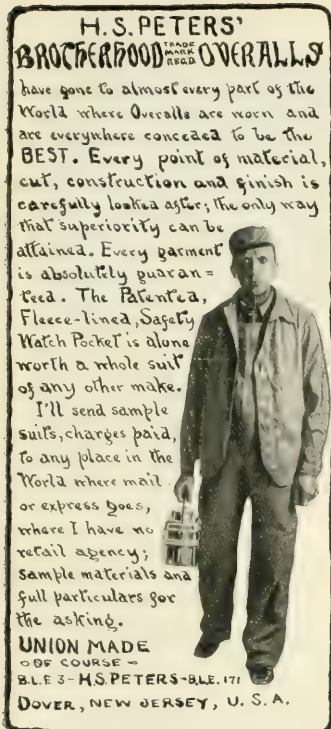 H.S. PETERS'
BROTHERHOOD TRADE MARK REGD OVERALLS
have gone to almost every part of the
World where Overalls are worn and
are everywhere conceded to be the
BEST. Every point of material,
cut, construction and finish is
carefully looked after; the only way
that superiority can be
attained. Every garment
is absolutely guaran=
teed. The Patented,
Fleece-lined, Safety
Watch Pocket is alone
worth a whole suit
of any other make.
I'll send sample
suits, charges paid,
to any place in the
World where mail
or express goes,
where I have no
retail agency;
sample materials and
full particulars for
the asking.
UNION MADE
OF COURSE
B.L.F. 3 - H.S. PETERS - B.L.E. 171
DOVER, NEW JERSEY, U.S.A.